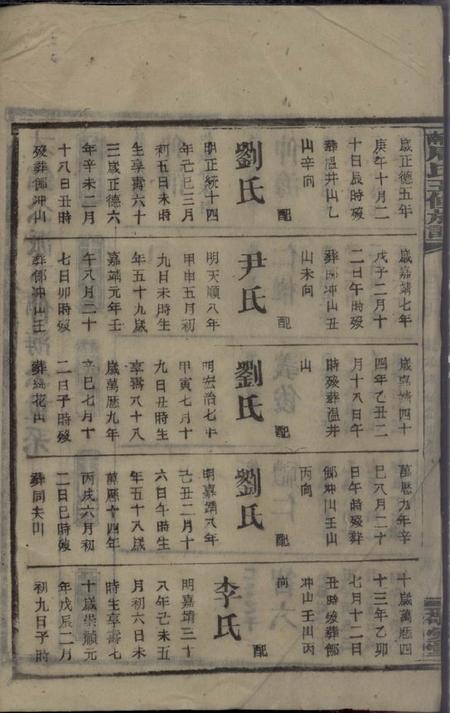 歲正德五年
庚午十月二
十日辰時歿
葬溫井山乙
山辛向
配
劉氏
明正統十四
年己巳三月
初五日未時
生享壽六十
三歲正德六
年辛未二月
十八日丑時
歿葬郎冲山
歲嘉靖七年
戊子二月十
二日午時歿
葬郎冲山丑
山未向
配
尹氏
明天順八年
甲申五月初
九日未時生
年五十九歲
嘉靖元年壬
午八月二十
七日卯時歿
葬郎冲山壬
歲嘉靖四十
四年乙丑二
月十八日午
時歿葬溫井
山
配
劉氏
明宏治七年
甲寅七月十
九日丑時生
享壽八十八
歲萬歷九年
辛巳七月十
二日子時歿
葬綿花山
萬歷九年辛
巳八月二十
日午時歿葬
郎冲山壬山
丙向
配
劉氏
明嘉靖八年
己丑二月十
六日午時生
年五十八歲
萬歷十四年
丙戌六月初
二日巳時歿
葬同夫山
十歲萬歷四
十三年乙卯
七月十二日
丑時歿葬郎
冲山壬山丙
向
配
李氏
明嘉靖三十
八年己未五
月初六日未
時生享壽七
十歲崇禎元
年戊辰二月
初九日子時